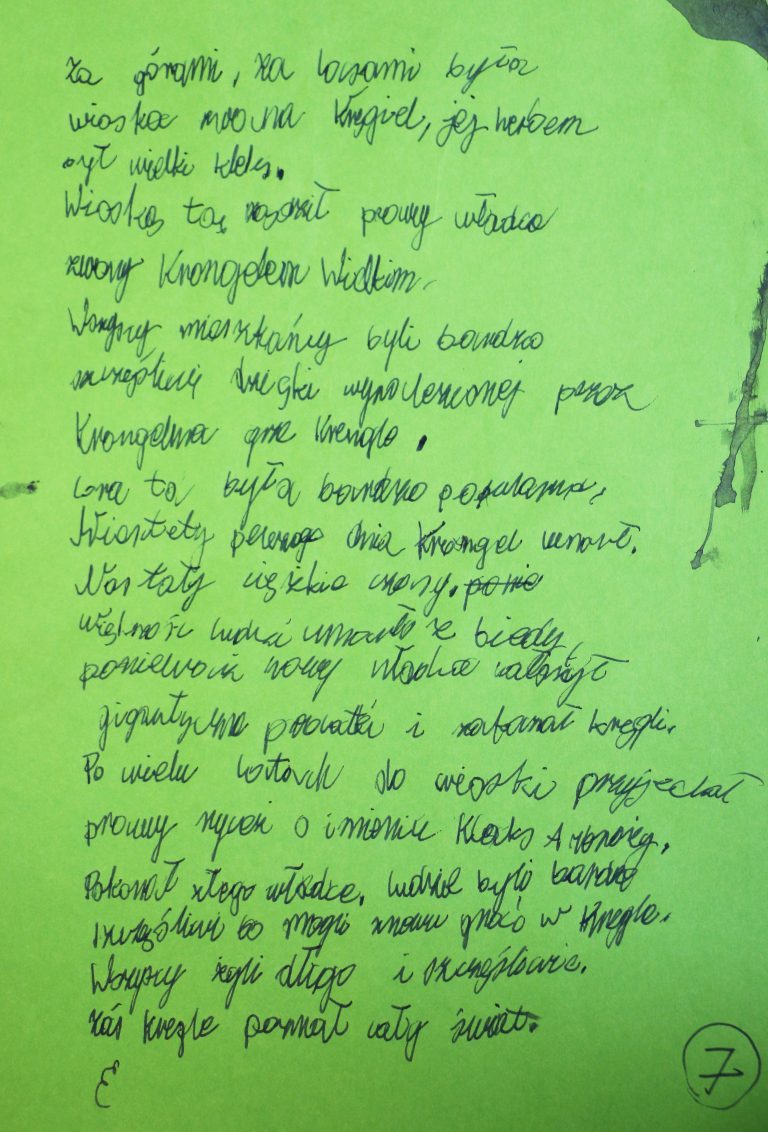 Za górami, za lasami była
wioska zwana Kręgiel, jej herbem
był wielki kleks.
Wioską tą rządził prawy władca
zwany Krongelem Wielkim.
Wszyscy mieszkańcy byli bardzo
szczęśliwi dzięki wynalezionej przez
Krongelma grze Krengle.
Gra ta była bardzo popularna.
Niestety pewnego dnia Krongel umarł.
Nastały ciężkie czasy. ponie
większość ludzi umarło z biedy,
ponieważ nowy władca nałożył
gigantyczne podatki i zabrał kręgli.
Po wielu latach do wioski przyjechał
prawy rycerz o imieniu Kleks
Pokonał złego władcę. Ludzie byli bardzo
szczęśliwi bo mogli znowu grać w Kręgle.
Wszyscy żyli długo i szczęśliwie.
Zaś Kręgle poznał cały świat.
E
7